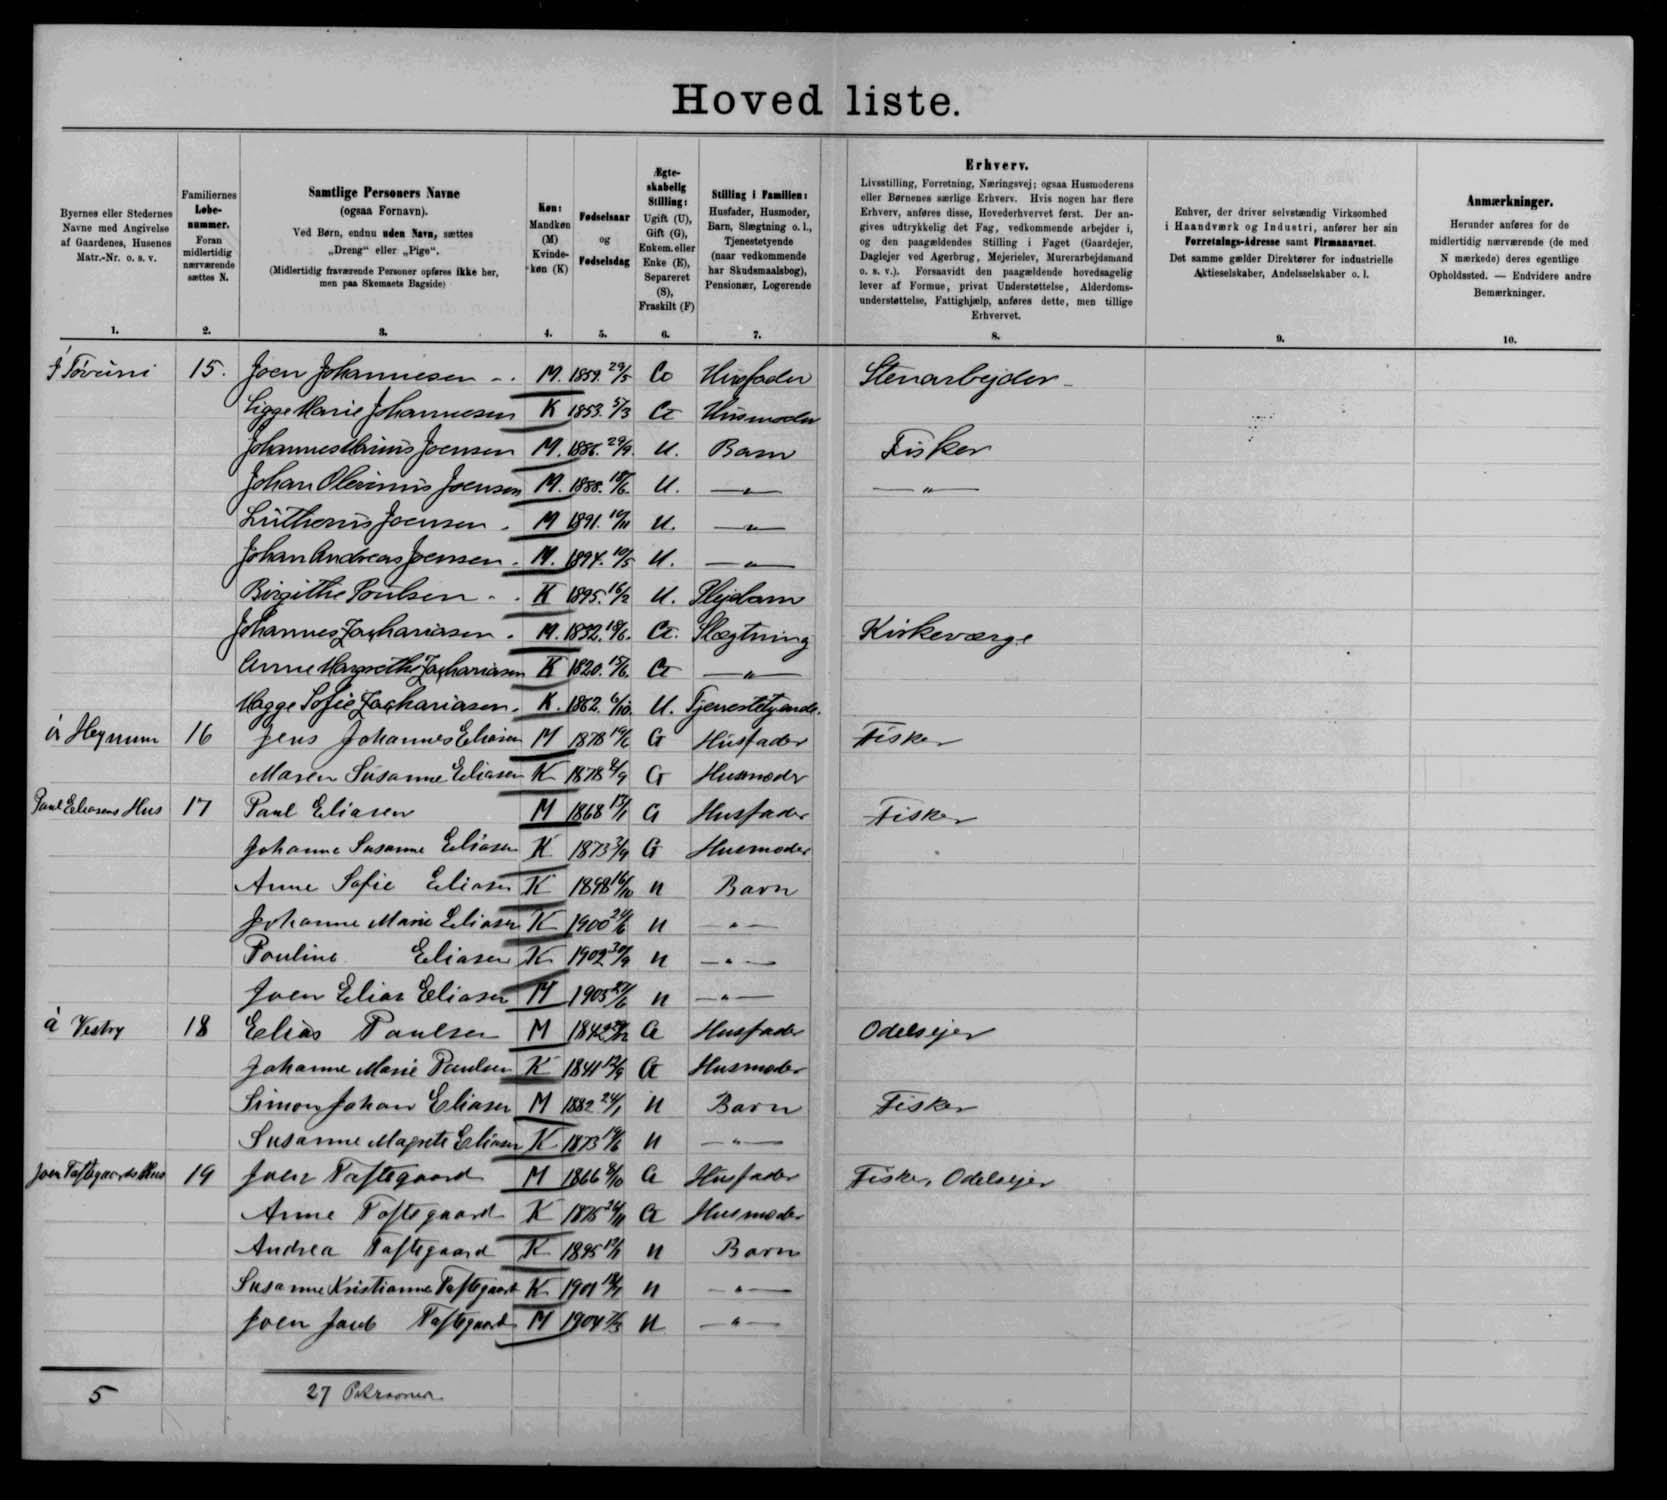 Hoved liste.
Byernes eller Stedernes Navne med Angivelse af Gaardenes, Husenes Matr.-Nr. o. s. v.
1.
Familiernes Løbenummer. Foran midlertidig nærværende sættes N.
2.
Samtlige Personers Navne (ogsaa Fornavn). Ved Børn, endnu uden Navn, sættes „Dreng“ eller „Pige“. (Midlertidig fraværende Personer opføres ikke her, men paa Skemaets Bagside)
3.
Køn: Mandkøn (M) Kvindekøn (K)
4.
Fødselsaar og Fødselsdag
5.
Ægteskabelig Stilling: Ugift (U), Gift (G), Enkem. eller Enke (E), Separeret (S), Fraskilt (F)
6.
Stilling i Familien: Husfader, Husmoder, Barn, Slægtning o. l., Tjenestetyende (naar vedkommende har Skudsmaalsbog), Pensionær, Logerende
7.
Erhverv.
Livsstilling, Forretning, Næringsvej; ogsaa Husmoderens eller Børnenes særlige Erhverv. Hvis nogen har flere Erhverv, anføres disse, Hovederhvervet først. Der angives udtrykkelig det Fag, vedkommende arbejder i, og den paagældendes Stilling i Faget (Gaardejer, Daglejer ved Agerbrug, Mejerielev, Murerarbejdsmand o. s. v.). Forsaavidt den paagældende hovedsagelig lever af Formue, privat Understøttelse, Alderdomsunderstøttelse, Fattighjælp, anføres dette, men tillige Erhvervet.
8.
Enhver, der driver selvstændig Virksomhed i Haandværk og Industri, anfører her sin Forretnings-Adresse samt Firmanavnet. Det samme gælder Direktører for industrielle Aktieselskaber, Andelsselskaber o. l.
9.
Anmærkninger.
Herunder anføres for de midlertidig nærværende (de med N mærkede) deres egentlige Opholdssted. — Endvidere andre Bemærkninger.
10.
15. Joen Johannesen M. 1859. 29/5 Husfader Stenarbejder
Sigge Marie Johannesen K 1853. G Husmoder
Johannes Joensen M. 1886. 29/9. U. Barn Fisker
Johan Joensen M. 1888. 18/6. U. — " — — " —
Joensen M 1891. U. — " —
Johan Andreas Joensen M. 1894. 10/5 U. — " —
Birgithe Poulsen K 1895. 16/2 U. Plejebarn
Johannes Zachariasen M. 1832. G. Slægtning Kirkeværge
Anne Margrethe Zachariasen K 1820. 15/6. G — " —
Magge Sofie Zachariasen K. 1862. 6/10. U. Tjenestetyende.
16 Jens Johannes Eliasen M 1878 19/6 G Husfader Fisker
Maren Susanne Eliasen K 1878 G Husmoder
Paul Eliasens Hus 17 Paul Eliasen M 1868 17/1 G Husfader Fisker
Johanne Susanne Eliasen K 1873 G Husmoder
Anne Sofie Eliasen K 1898 16/10 U Barn
Johanne Marie Eliasen K 1900 24/6 U — " —
Pouline Eliasen K 1902 30/9 U — " —
Joen Elias Eliasen M 1905 U — " —
á Vestry 18 Elias Paulsen M 1842 G Husfader Odelsejer
Johanne Marie Paulsen K 1841 12/9 G Husmoder
Simon Johan Eliasen M 1882 24/1 U Barn Fisker
Susanne Magrete Eliasen K 1873 U — " —
Joen Toftegaards Hus 19 Joen Toftegaard M 1866 G Husfader Fisker, Odelsejer
Anne Toftegaard K 1875 26/11 G Husmoder
Andrea Toftegaard K 1895 U Barn
Susanne Kristianne Toftegaard K 1901 U — " —
Joen Toftegaard M 1904 U — " —
5 27 Personer